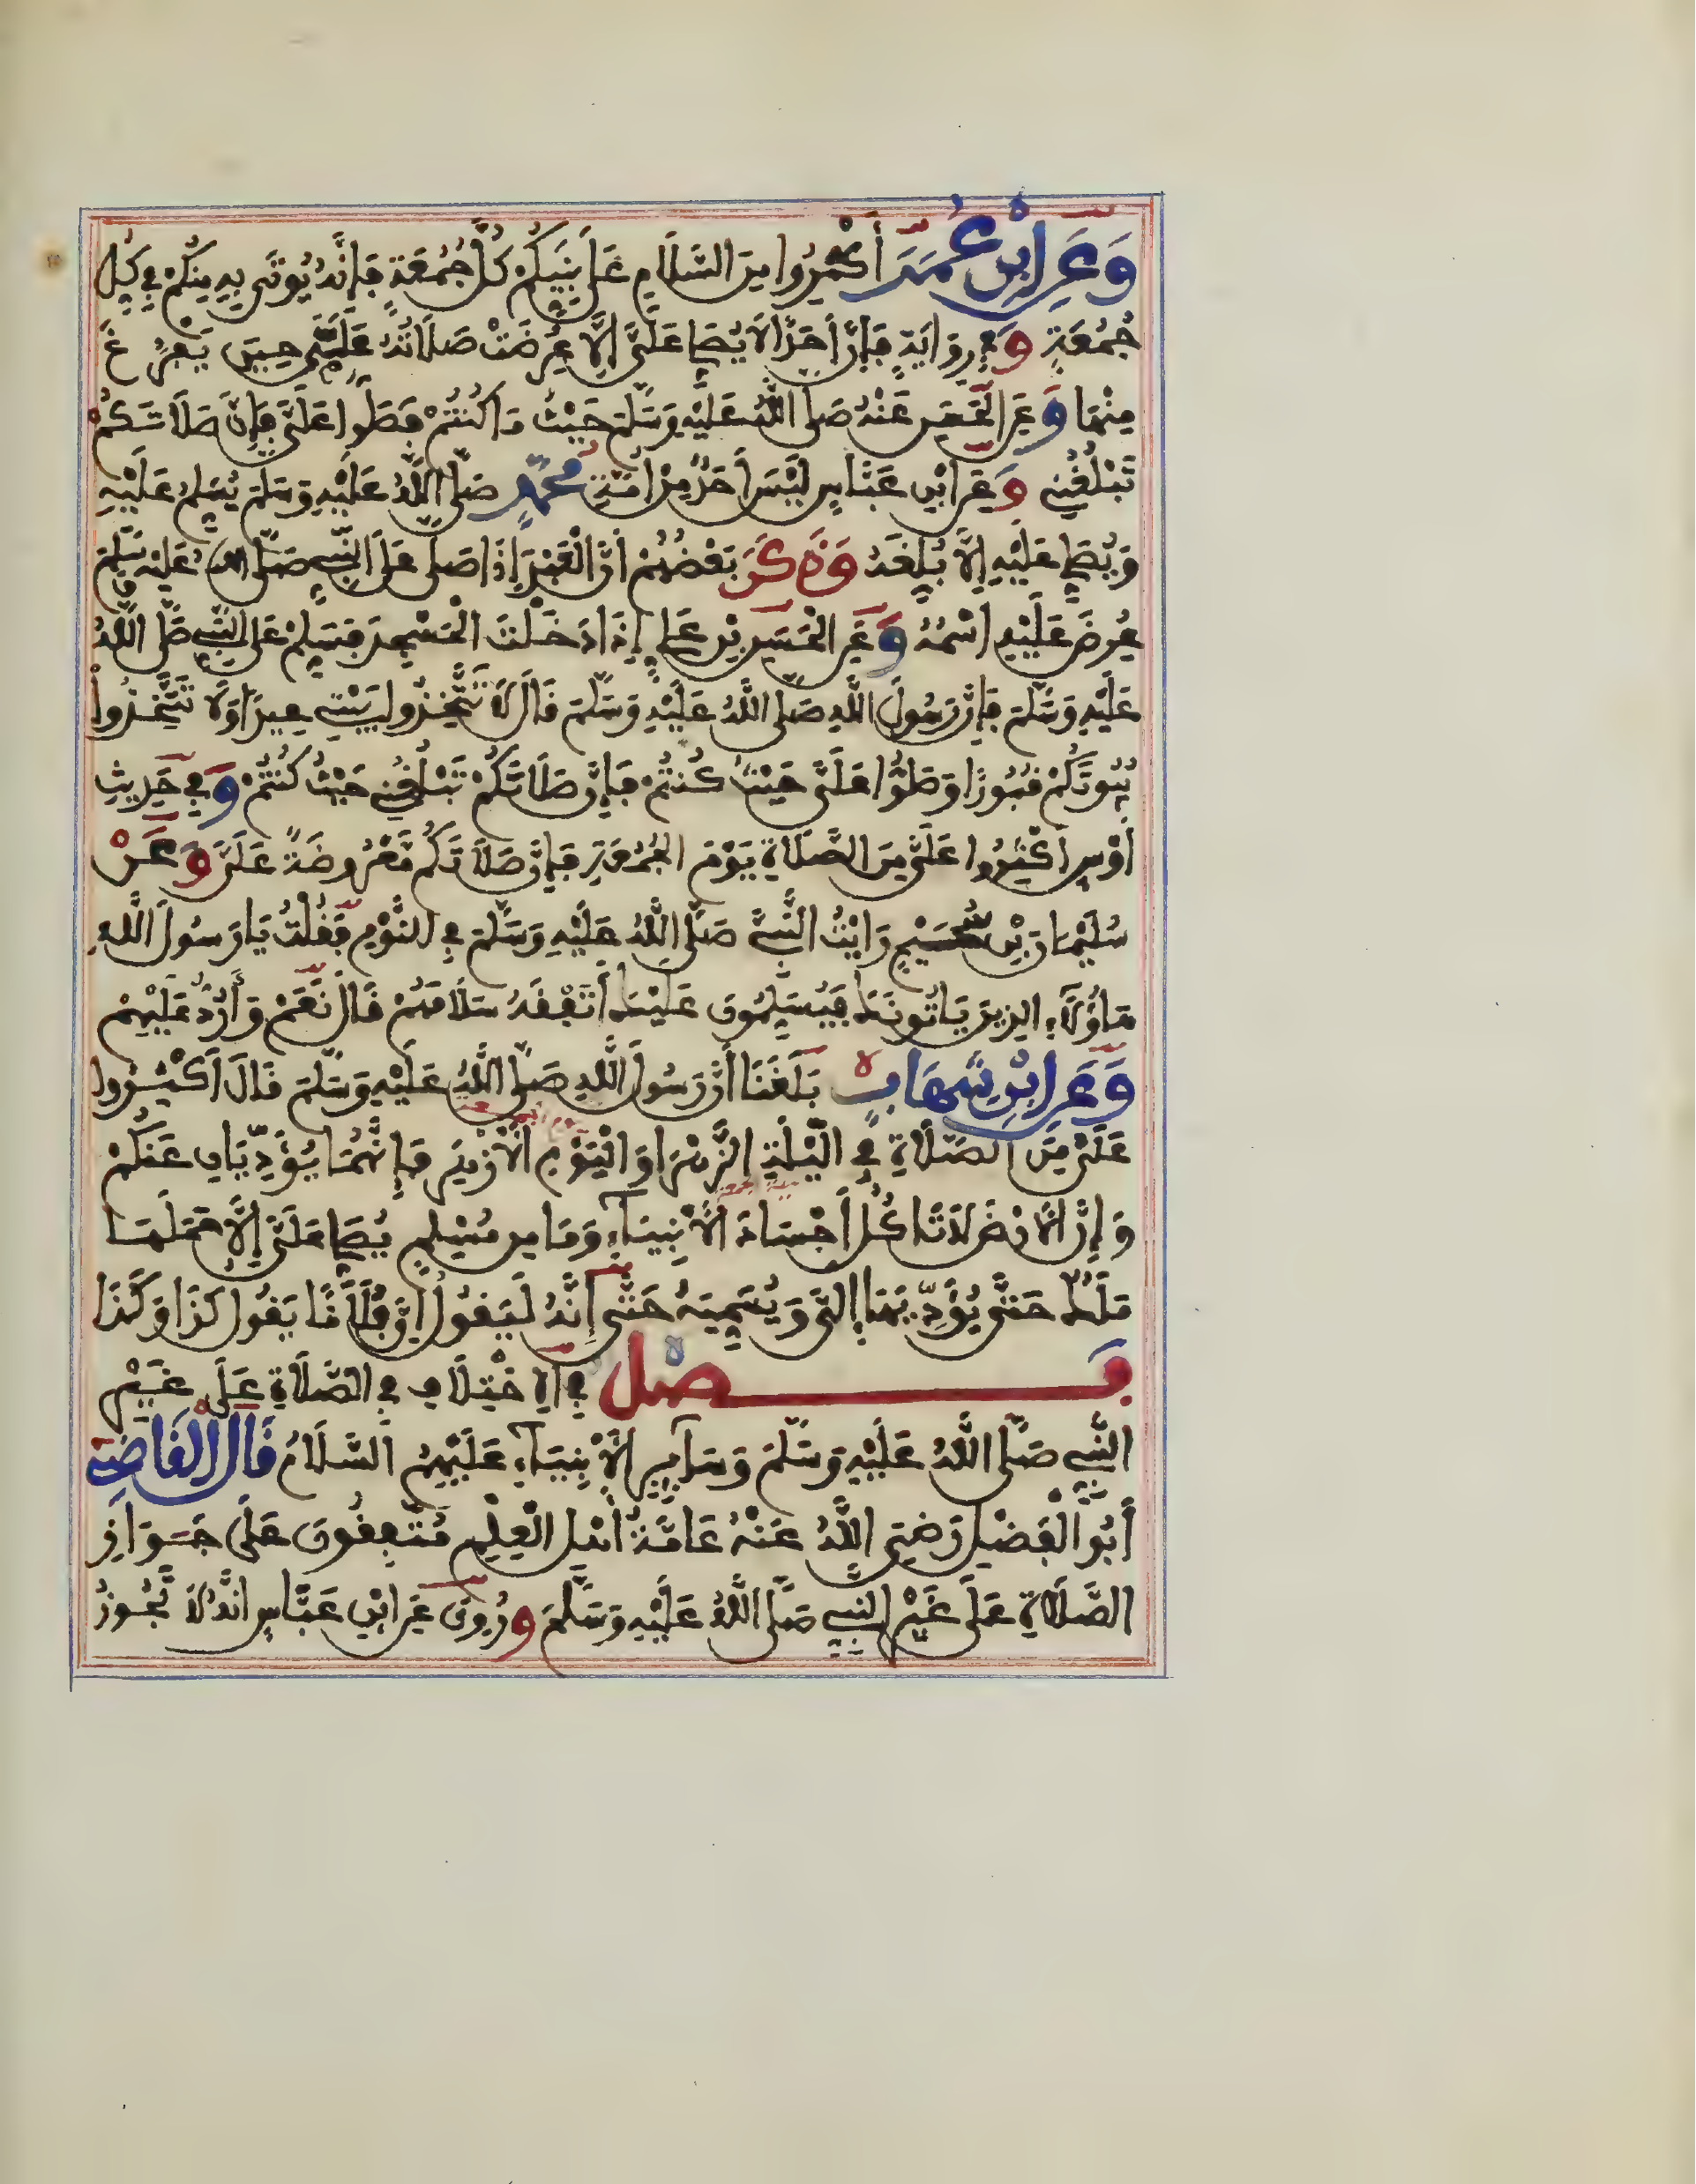 وَعَنِ ابْنِ عُمَرَ أَكْثِرُوا مِنَ السَّلَامِ عَلَى نَبِيِّكُمْ كُلَّ جُمُعَةٍ فَإِنَّهُ يُوتَى بِهِ مِنْكُمْ فِي كُلِّ
جُمُعَةٍ وَفِي رِوَايَةٍ فَإِنَّ أَحَدًا لَا يُصَلِّي عَلَيَّ إِلَّا عُرِضَتْ صَلَاتُهُ عَلَيَّ حِينَ يَفْرُغُ
مِنْهَا وَعَنِ الْحَسَنِ عَنْهُ صَلَّى اللَّهُ عَلَيْهِ وَسَلَّمَ حَيْثُ مَا كُنْتُمْ فَصَلُّوا عَلَيَّ فَإِنَّ صَلَاتَكُمْ
تَبْلُغُنِي وَعَنِ ابْنِ عَبَّاسٍ لَيْسَ أَحَدٌ مِنْ أُمَّةِ مُحَمَّدٍ صَلَّى اللَّهُ عَلَيْهِ وَسَلَّمَ يُسَلِّمُ عَلَيْهِ
وَيُصَلِّي عَلَيْهِ إِلَّا بُلِّغَهُ وَذَكَرَ بَعْضُهُمْ أَنَّ الْعَبْدَ إِذَا صَلَّى عَلَى النَّبِيِّ صَلَّى اللَّهُ عَلَيْهِ وَسَلَّمَ
عُرِضَ عَلَيْهِ اسْمُهُ وَعَنِ الْحَسَنِ بْنِ عَلِيٍّ إِذَا دَخَلْتَ الْمَسْجِدَ فَسَلِّمْ عَلَى النَّبِيِّ صَلَّى اللَّهُ
عَلَيْهِ وَسَلَّمَ فَإِنَّ رَسُولَ اللَّهِ صَلَّى اللَّهُ عَلَيْهِ وَسَلَّمَ قَالَ لَا تَتَّخِذُوا بَيْتِي عِيدًا وَلَا تَتَّخِذُوا
بُيُوتَكُمْ قُبُورًا وَصَلُّوا عَلَيَّ حَيْثُ كُنْتُمْ فَإِنَّ صَلَاتَكُمْ تَبْلُغُنِي حَيْثُ كُنْتُمْ وَفِي حَدِيثِ
أَوْسٍ أَكْثِرُوا عَلَيَّ مِنَ الصَّلَاةِ يَوْمَ الْجُمُعَةِ فَإِنَّ صَلَاتَكُمْ مَعْرُوضَةٌ عَلَيَّ وَعَنْ
سُلَيْمَانَ بْنِ سُحَيْمٍ رَأَيْتُ النَّبِيَّ صَلَّى اللَّهُ عَلَيْهِ وَسَلَّمَ فِي النَّوْمِ فَقُلْتُ يَا رَسُولَ اللَّهِ
هَاؤُلَاءِ الذِينَ يَاتُونَكَ فَيُسَلِّمُونَ عَلَيْكَ أَتَفْقَهُ سَلَامَهُمْ قَالَ نَعَمْ وَأَرُدُّ عَلَيْهِمْ
وَعَنِ ابْنِ شِهَابٍ بَلَغَنَا أَنَّ رَسُولَ اللَّهِ صَلَّى اللَّهُ عَلَيْهِ وَسَلَّمَ قَالَ أَكْثِرُوا
عَلَيَّ مِنَ الصَّلَاةِ فِي اللَّيْلَةِ الزَّهْرَا وَالْيَوْمِ الْأَزْهَرِ فَإِنَّهُمَا يُؤَدِّيَانِ عَنْكُمْ
وَإِنَّ الْأَرْضَ لَا تَاكُلُ أَجْسَادَ الْأَنْبِيَاءِ وَمَا مِنْ مُسْلِمٍ يُصَلِّي عَلَيَّ إِلَّا حَمَلَهَا
مَلَكٌ حَتَّى يُؤَدِّيَهَا إِلَيَّ وَيُسَمِّيَهُ حَتَّى إِنَّهُ لَيَقُولُ إِنَّ فُلَانًا يَقُولُ كَذَا وَكَذَا
فَصْلٌ فِي الِاخْتِلَافِ فِي الصَّلَاةِ عَلَى غَيْرِ
النَّبِيِّ صَلَّى اللَّهُ عَلَيْهِ وَسَلَّمَ وَسَائِرِ الْأَنْبِيَاءِ عَلَيْهِمُ السَّلَامُ قَالَ الْقَاضِي
أَبُو الْفَضْلِ رَضِيَ اللَّهُ عَنْهُ عَامَّةُ أَهْلِ الْعِلْمِ مُتَّفِقُونَ عَلَى جَوَازِ
الصَّلَاةِ عَلَى غَيْرِ النَّبِيِّ صَلَّى اللَّهُ عَلَيْهِ وَسَلَّمَ وَرُوِيَ عَنِ ابْنِ عَبَّاسٍ أَنَّهُ لَا تَجُوزُ